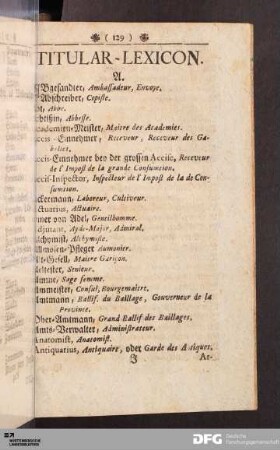 ( 129 )
TITULAR-LEXICON.
A.
Bgesandter, Ambassadeur, Envoye.
Abschreiber, Copiste.
Abbe.
btißin, Abbesse.
cademien-Meister, Maitre des Academies.
ccis-Einnehmer, Receveur, Receveur des Gabelles.
ccis-Einnehmer bey der grossen Accise, Receveur
de l'Impost de la grande Consumtion.
ccis-Inspector, Inspecteur de l'Impost de la de Consumtion.
ckermann, Laboreur, Cultiveur.
ctuarius, Actuaire.
ner von Adel, Gentilhomme.
djutant, Ayde-Major, Admiral.
lchymist, Alchymiste.
llmosen-Pfleger Aumonier.
lt-Gesell, Maitre Garçon.
eltester, Senieur.
mme, Sage femme.
mmeister, Consul, Bourgemaitre.
mtmann, Ballif du Baillage, Gouverneur de la
Province.
Ober-Amtmann, Grand Ballif des Baillages.
mts-Verwalter, Administrateur.
natomist, Anatomist.
Antiquarius, Antiquaire, oder Garde des Antiques.
J At-
WÜRTTEMBERGISCHE
LANDESBIBLIOTHEK
DFG Deutsche
Forschungsgemeinschaft